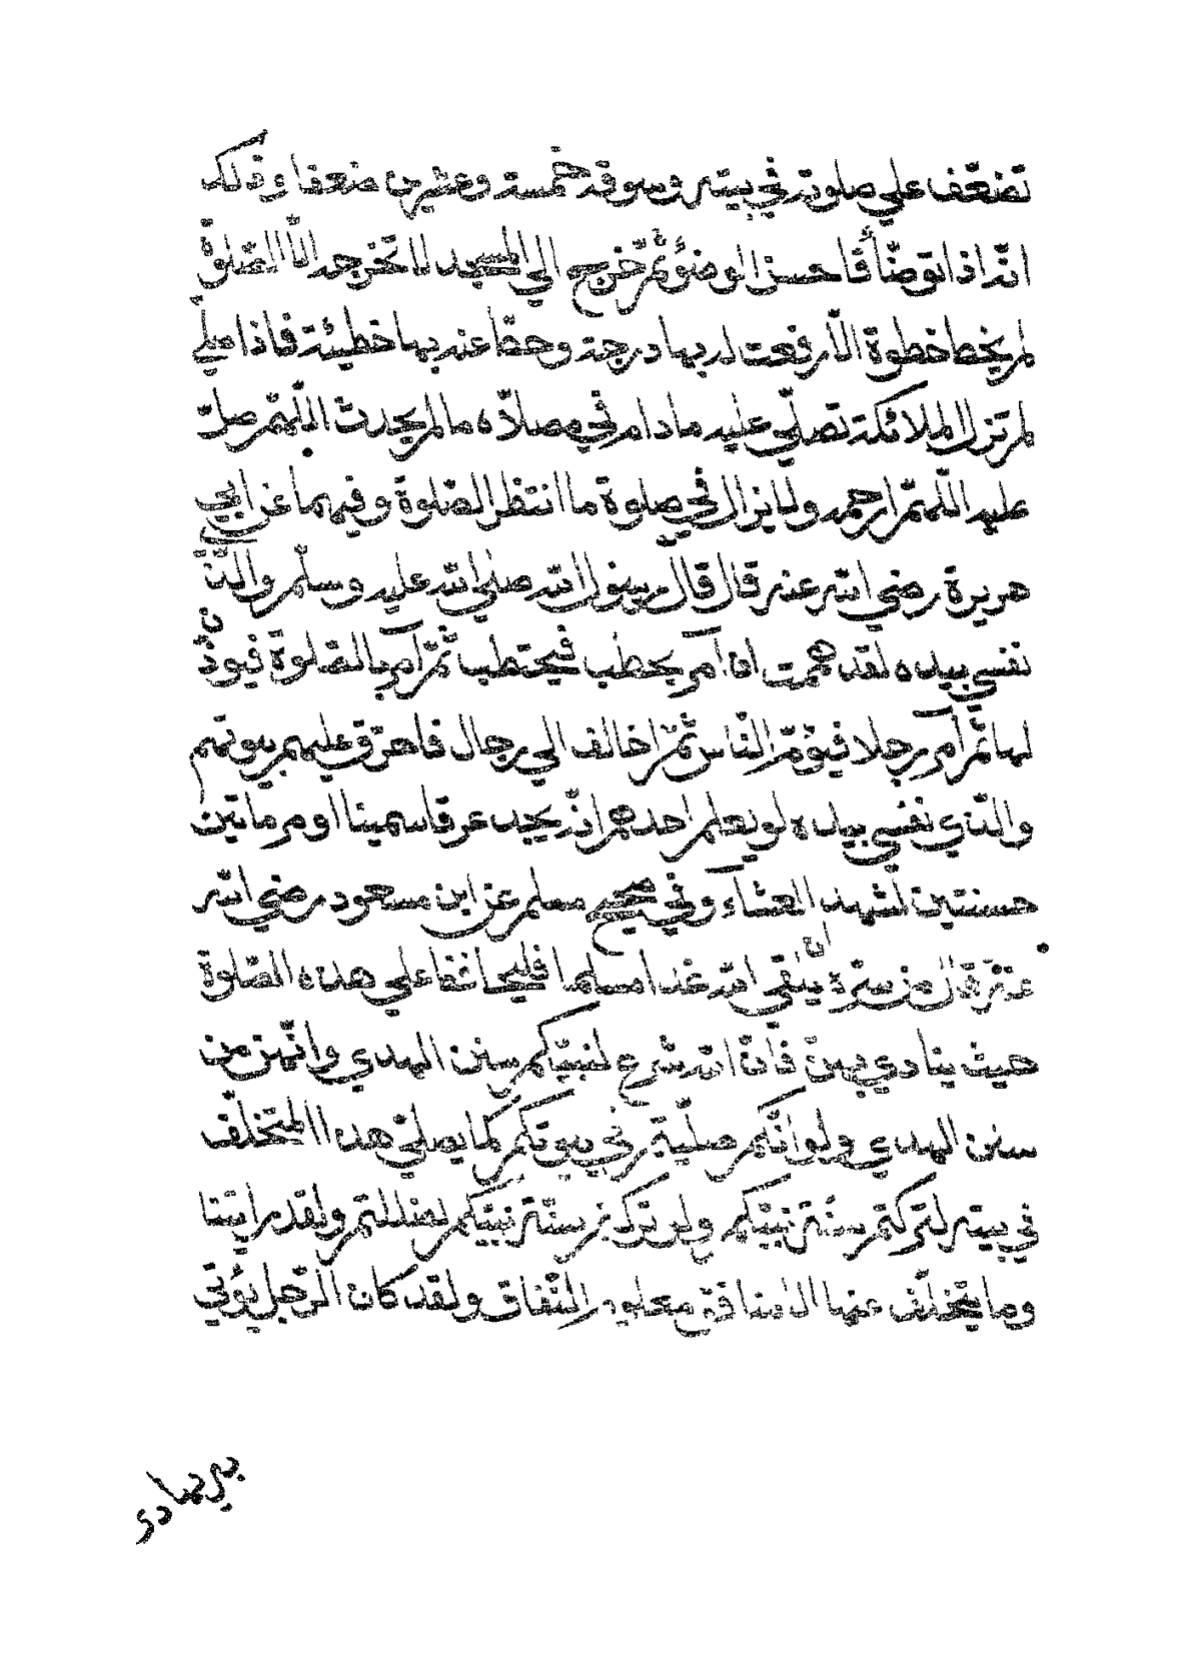 تضعّف علي صلوته في بيته وسوقه خمسة وعشرين ضعفا وذلك
انّه اذا توضّأ فاحسن الوضوء ثمّ خرج الي المسجد لا تخرجه الاّ الصّلوة
لم يخط خطوة الاّ رفعت له بها درجة وحطّ عنه بها خطيئة فاذا صلّي
لم تزل الملائكة تصلّي عليه مادام في مصلاّه ما لم يحدث اللّهمّ صلّ
عليه اللّهمّ ارحمه ولا يزال في صلوة ما انتظر الصّلوة وفيهما عن ابي
هريرة رضي الله عنه قال قال رسول الله صلي الله عليه وسلم والّذي
نفسي بيده لقد هممت ان آمر بحطب فيحتطب ثمّ آمر بالصّلوة فيوذّن
لها ثمّ آمر رجلا فيؤمّ النّاس ثمّ اخالف الي رجال فاحرّق عليهم بيوتهم
والّذي نفسي بيده لو يعلم احدهم انّه يجد عرقا سمينا او مرماتين
حسنتين لشهد العشآء وفي صحيح مسلم عن ابن مسعود رضي الله
عنه قال من سره ان يلقي الله غدا مسلما فليحافظ علي هذه الصّلوة
حيث ينادي بهنّ فانّ الله شرع لنبيّكم سنن الهدي وانّهن من
سنن الهدي ولو انّكم صلّيتم في بيوتكم كما يصلي هذا المتخلّف
في بيته لتركتم سنّة نبيّكم ولو تركتم سنّة نبيّكم لضللتم ولقد رايتنا
وما يتخلّف عنها الا منافق معلوم النّفاق ولقد كان الرّجل يؤتي